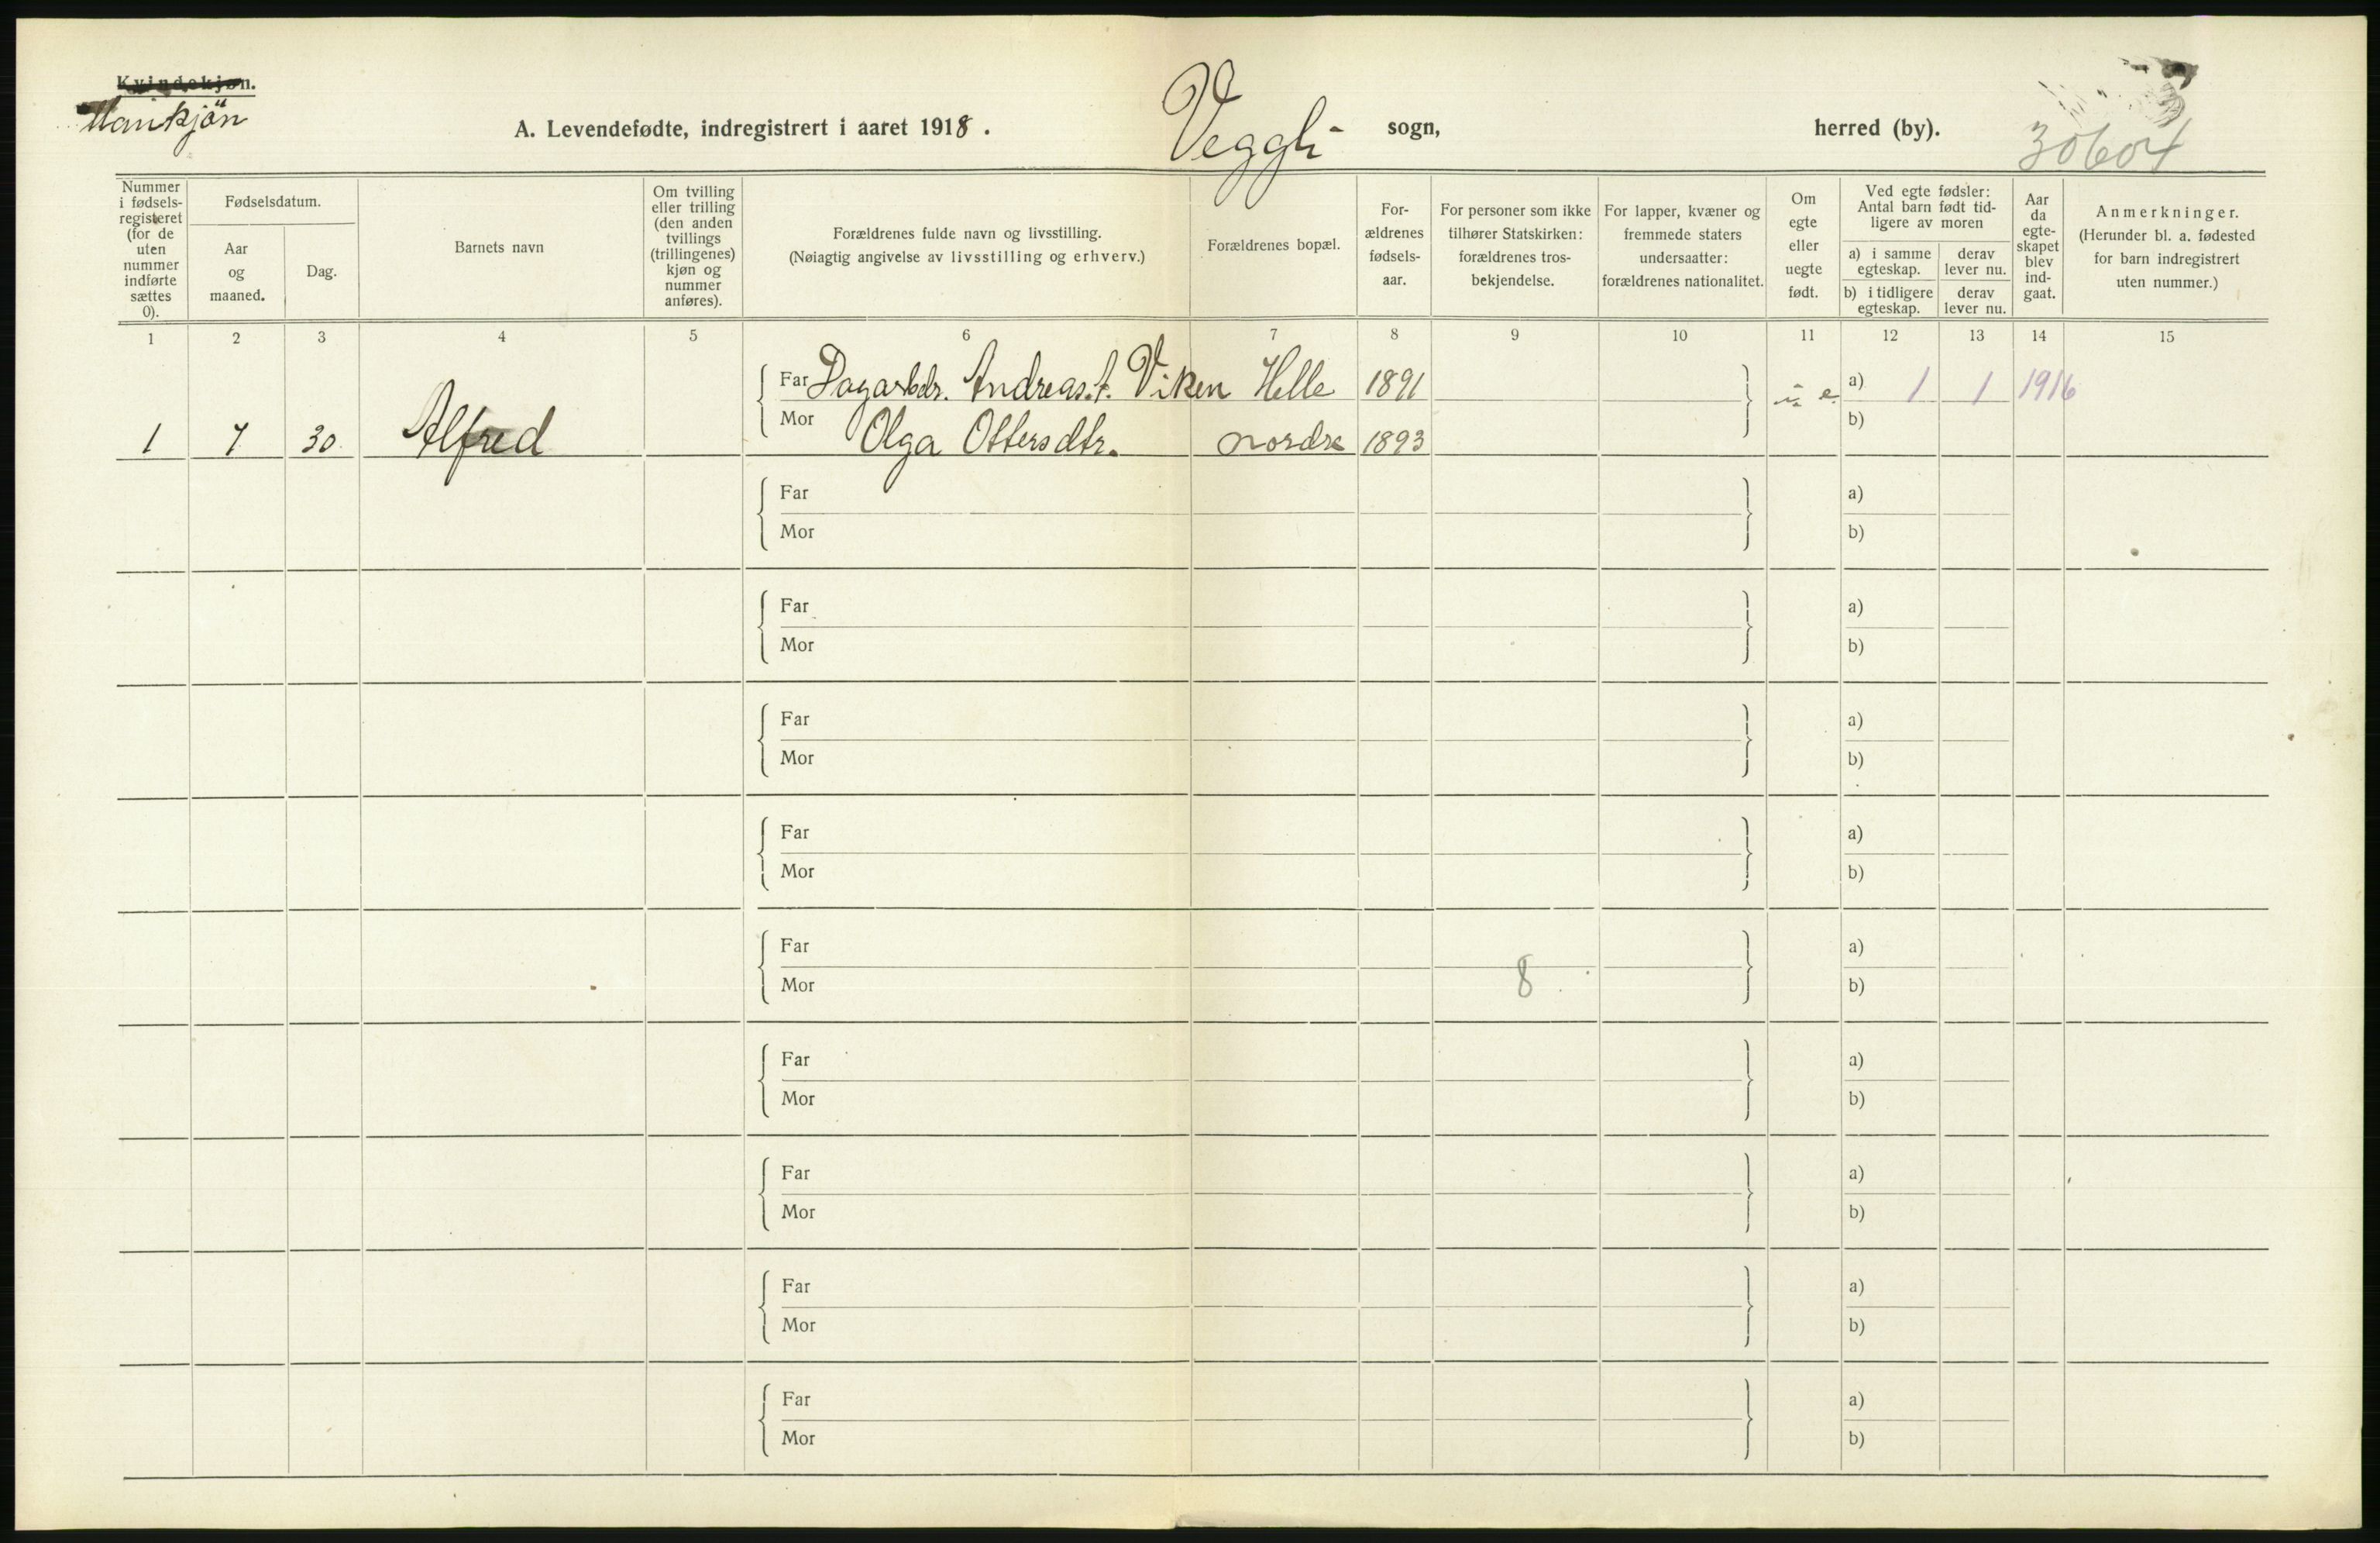 Kvindekjøn.
Mankjön
A. Levendefødte, indregistrert i aaret 1918. Veggli sogn, herred (by).
30604
Nummer i fødsels-registeret (for de uten nummer indførte sættes 0).
Fødselsdatum.
Aar og maaned.
Dag.
Barnets navn
Om tvilling eller trilling (den anden tvillings (trillingenes) kjøn og nummer anføres).
Forældrenes fulde navn og livsstilling.
(Nøiagtig angivelse av livsstilling og erhverv.)
Forældrenes bopæl.
For-ældrenes fødsels-aar.
For personer som ikke tilhører Statskirken: forældrenes tros-bekjendelse.
For lapper, kvæner og fremmede staters undersaatter: forældrenes nationalitet.
Om egte eller uegte født.
Ved egte fødsler: Antal barn født tid-ligere av moren
a) i samme egteskap.
derav lever nu.
b) i tidligere egteskap.
derav lever nu.
Aar da egte-skapet blev ind-gaat.
Anmerkninger.
(Herunder bl. a. fødested for barn indregistrert uten nummer.)
1 2 3 4 5 6 7 8 9 10 11 12 13 14 15
Far Dagarbdr. Andreas Viken Helle 1891 e. a) 1 1 1916
1 7 30. Alfred Mor Olga Ottersdtr. nordre 1893 b)
Far a)
Mor b)
Far a)
Mor b)
Far a)
Mor b)
Far a)
Mor b)
Far a)
Mor 8 b)
Far a)
Mor b)
Far a)
Mor b)
Far a)
Mor b)
Far a)
Mor b)